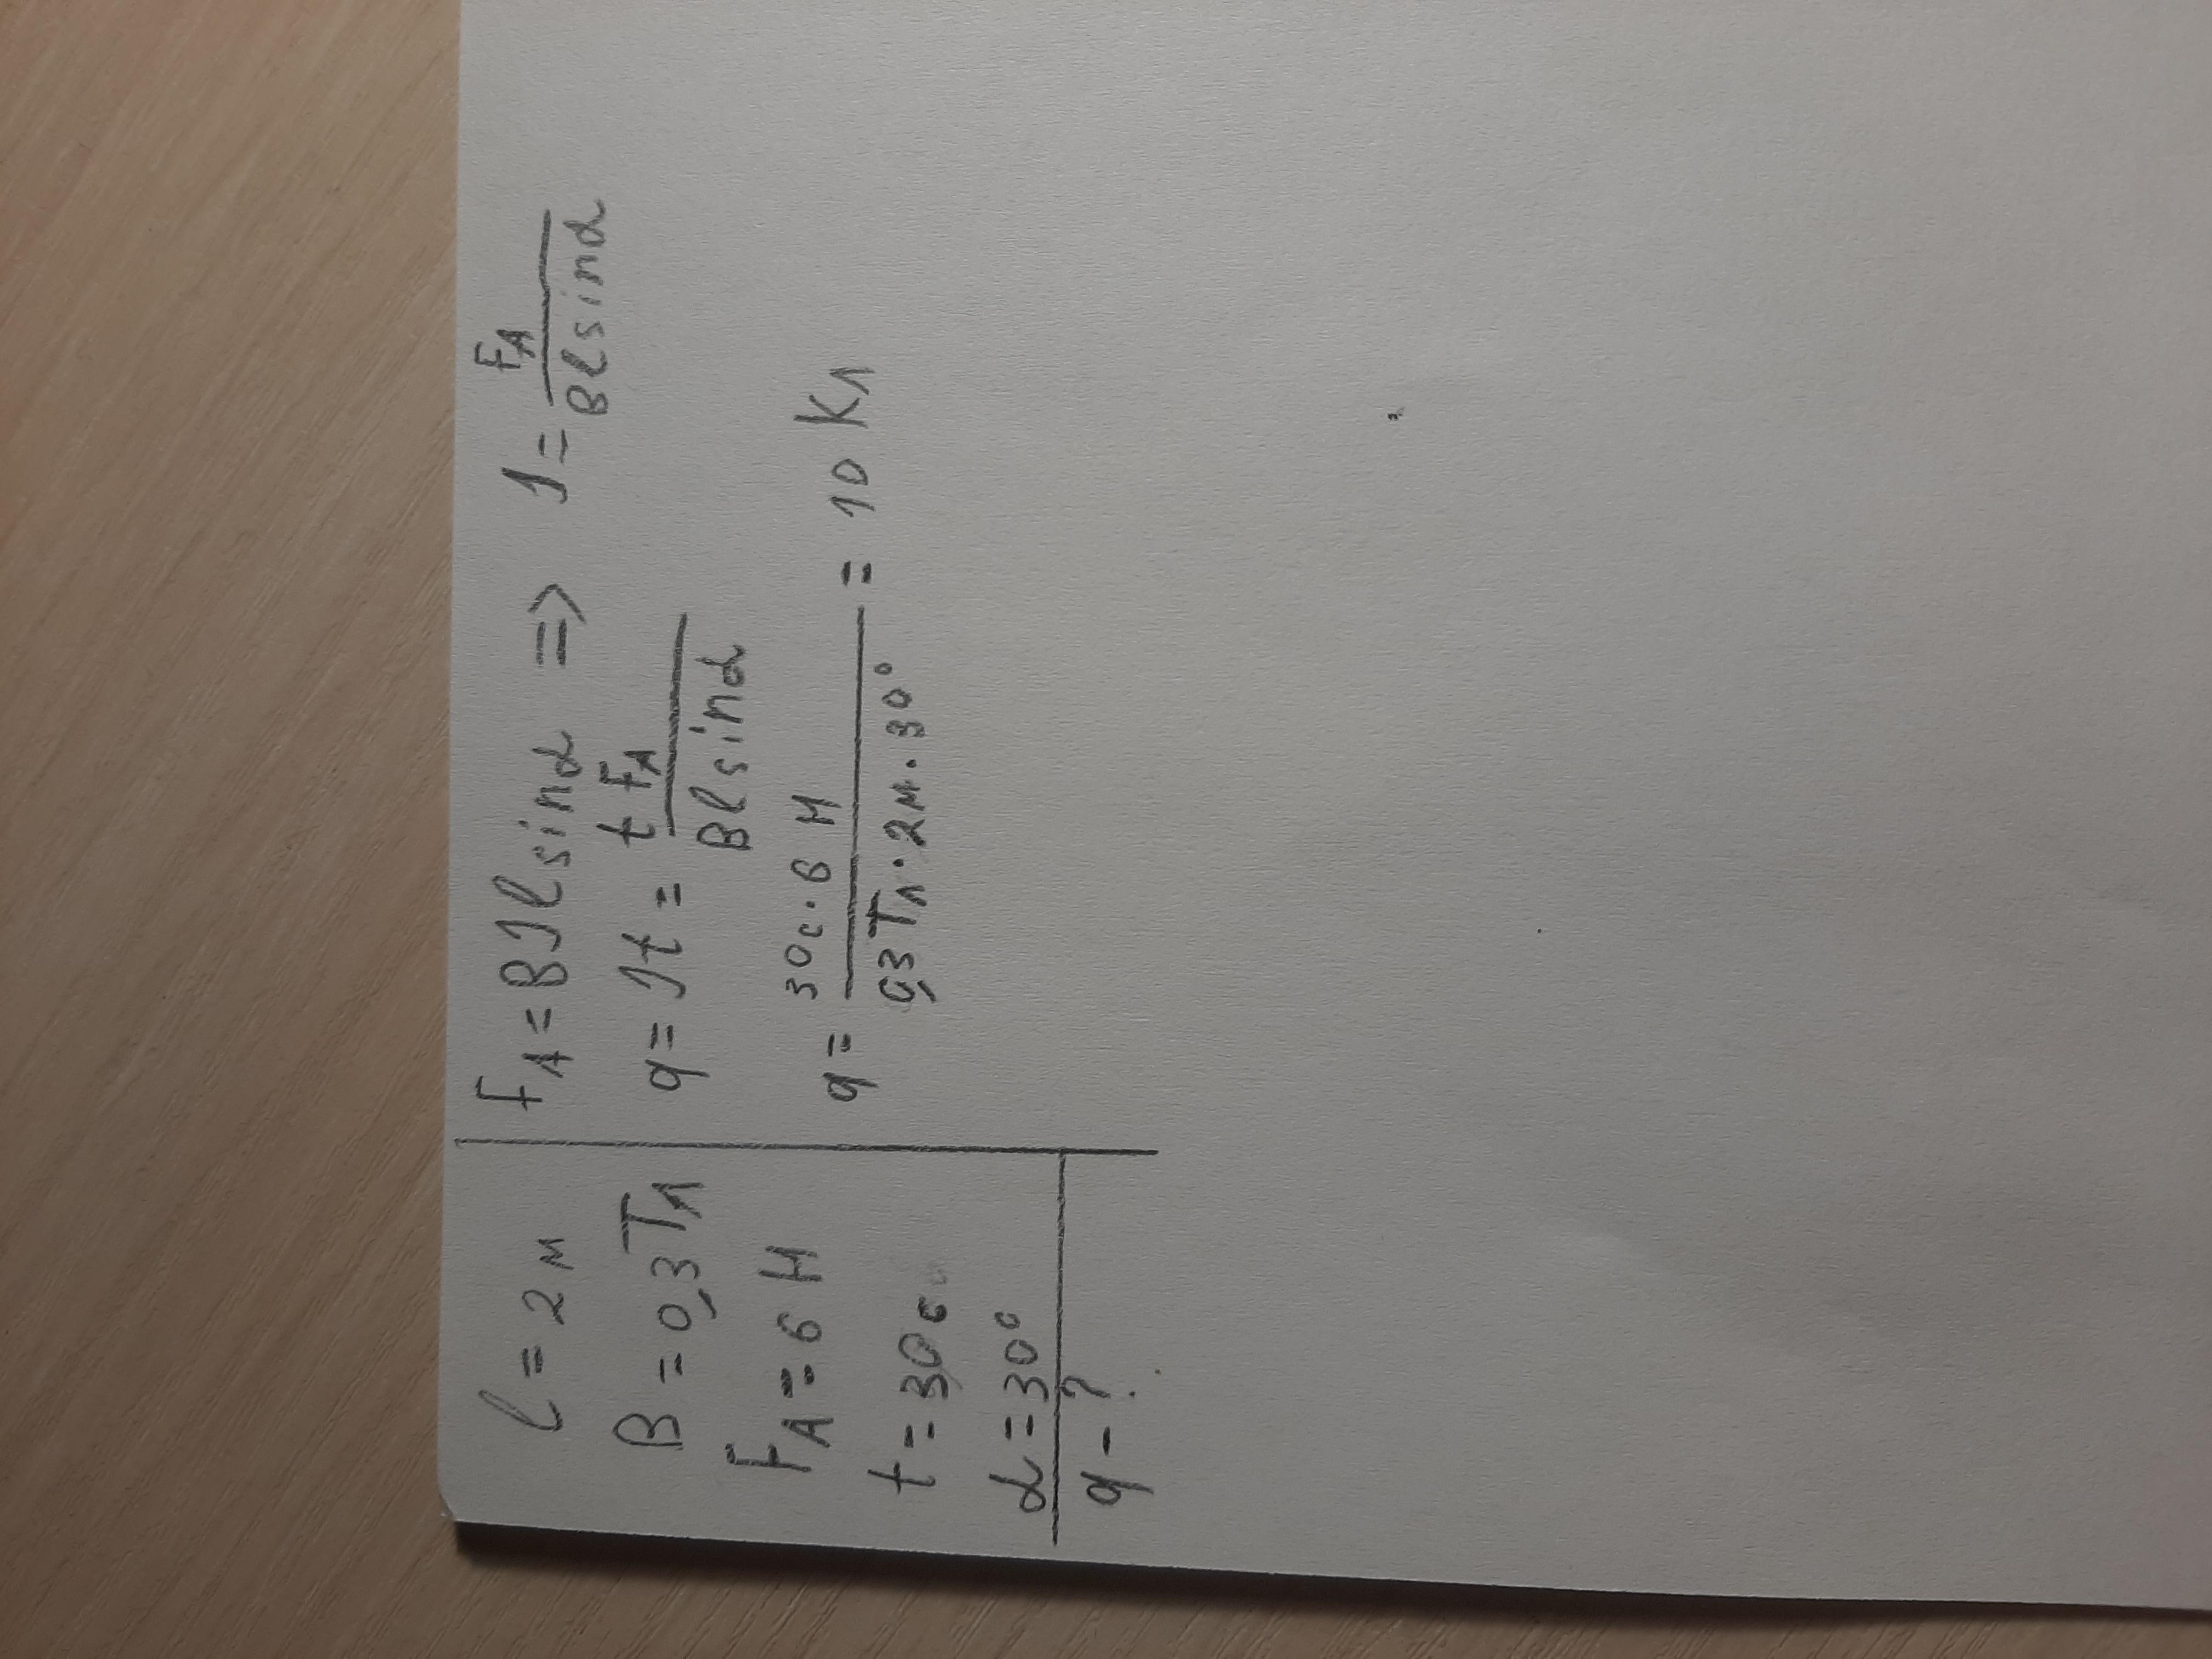 l = 2 м
B = 0,3 Тл
F_A = 6 Н
t = 30 с
α = 30°
q - ?
F_A = BIl sinα => I = F_A / Bl sinα
q = It = t F_A / Bl sinα
q = 30 с · 6 Н / 0,3 Тл · 2 м · 30° = 10 Кл